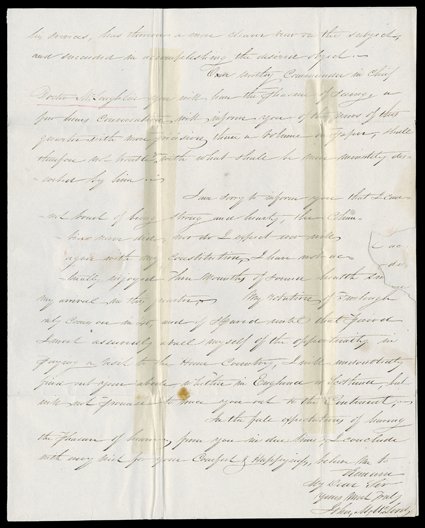 by sources, has thrown a more clearer view on the subject,
and succeeded in accomplishing the desired object.
Our worthy Commander in Chief
Doctor McLoughlin you will have the pleasure of seeing, a
few hours Conversation will inform you of the news of this
quarter with more precision, than a Volume in paper, I shall
therefore not trouble with what shall be more minutely des-
-cribed by him
I am sorry to inform you that I can-
-not boast of being strong and hearty, the Colum-
never nor do I expect ever will
again with my Constitution, I have not ac-
-tually enjoyed three Months of sound health Since
my arrival in this quarter. My rotation of Furlough
only Comes on and if Spared until that Period
I most assuredly avail myself of the opportunity in
paying a visit to the Home Country, I will undoubtedly
find out your abode, whether in England or Scotland, but
will not Promise to trace you out to the Continent.
In the full expectations of having
the Pleasure of hearing from you in due time, I conclude
with every wish for your Comfort & Happiness, believe me to
Remain
My Dear Sir
Yours Most truly